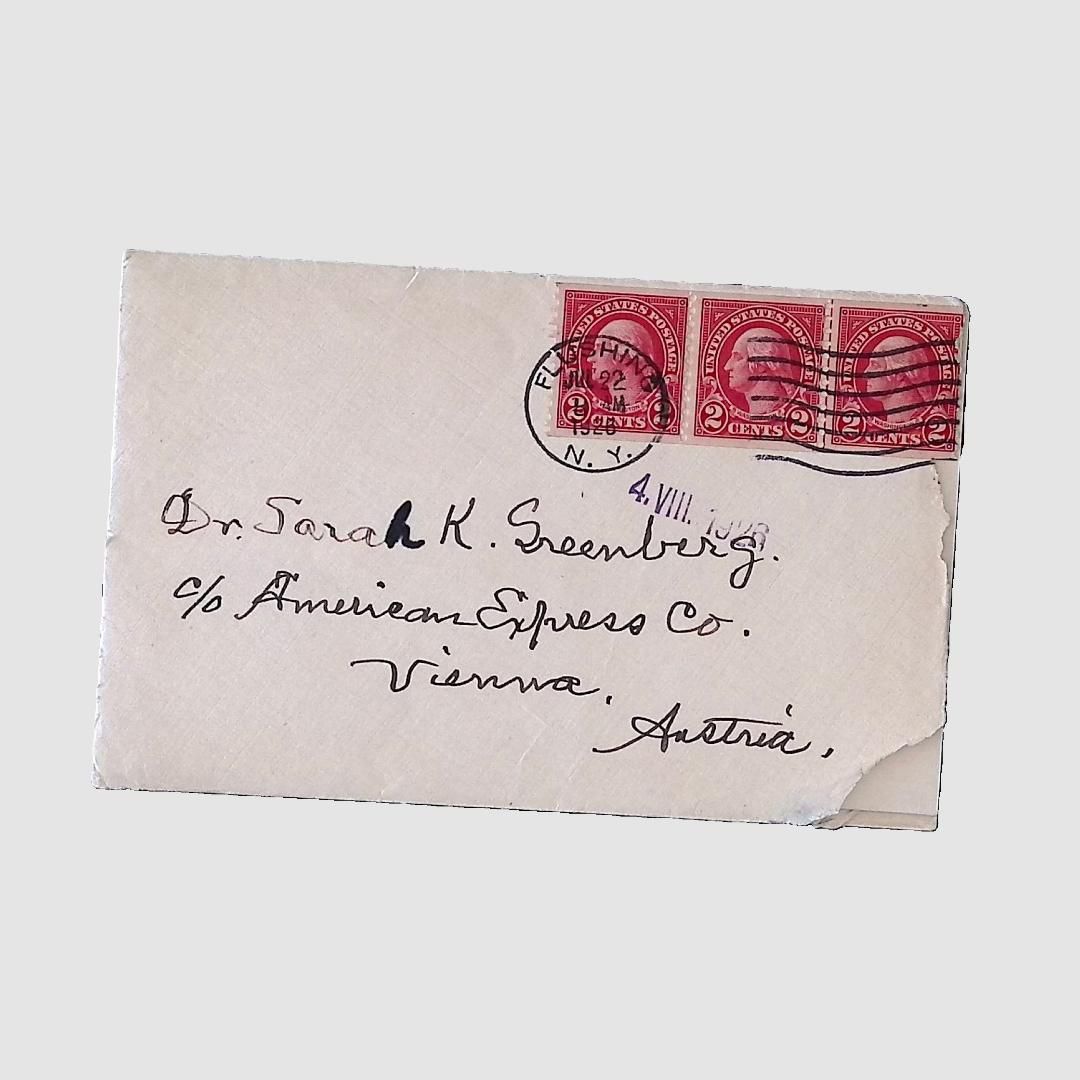 UNITED STATES POSTAGE
2 CENTS 2
UNITED STATES POSTAGE
2 CENTS 2
UNITED STATES POSTAGE
2 CENTS 2
FLUSHING
JUL 22
1926
N. Y.
4. VIII. 1926
Dr. Sarah K. Greenberg.
c/o American Express Co.
Vienna,
Austria,